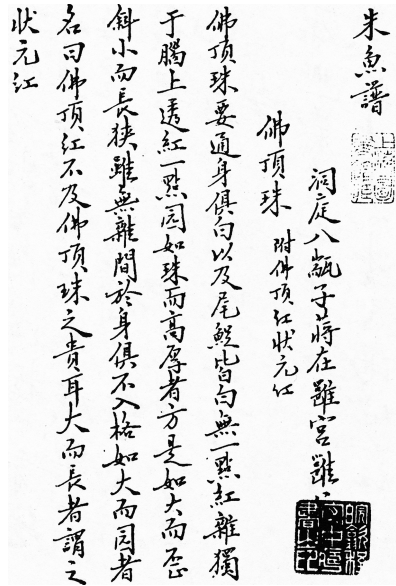 朱魚譜
洞庭八子蔣在雝宮
佛頂珠 附佛頂紅狀元紅
佛頂珠要通身俱白以及尾皆白無一點紅雜獨
于腦上透紅一點园如珠而高厚者方是如大而歪
斜小而長狹雖無雜間於身俱不入格如大而园者
名曰佛頂紅不及佛頂珠之貴耳大而長者謂之
狀元紅